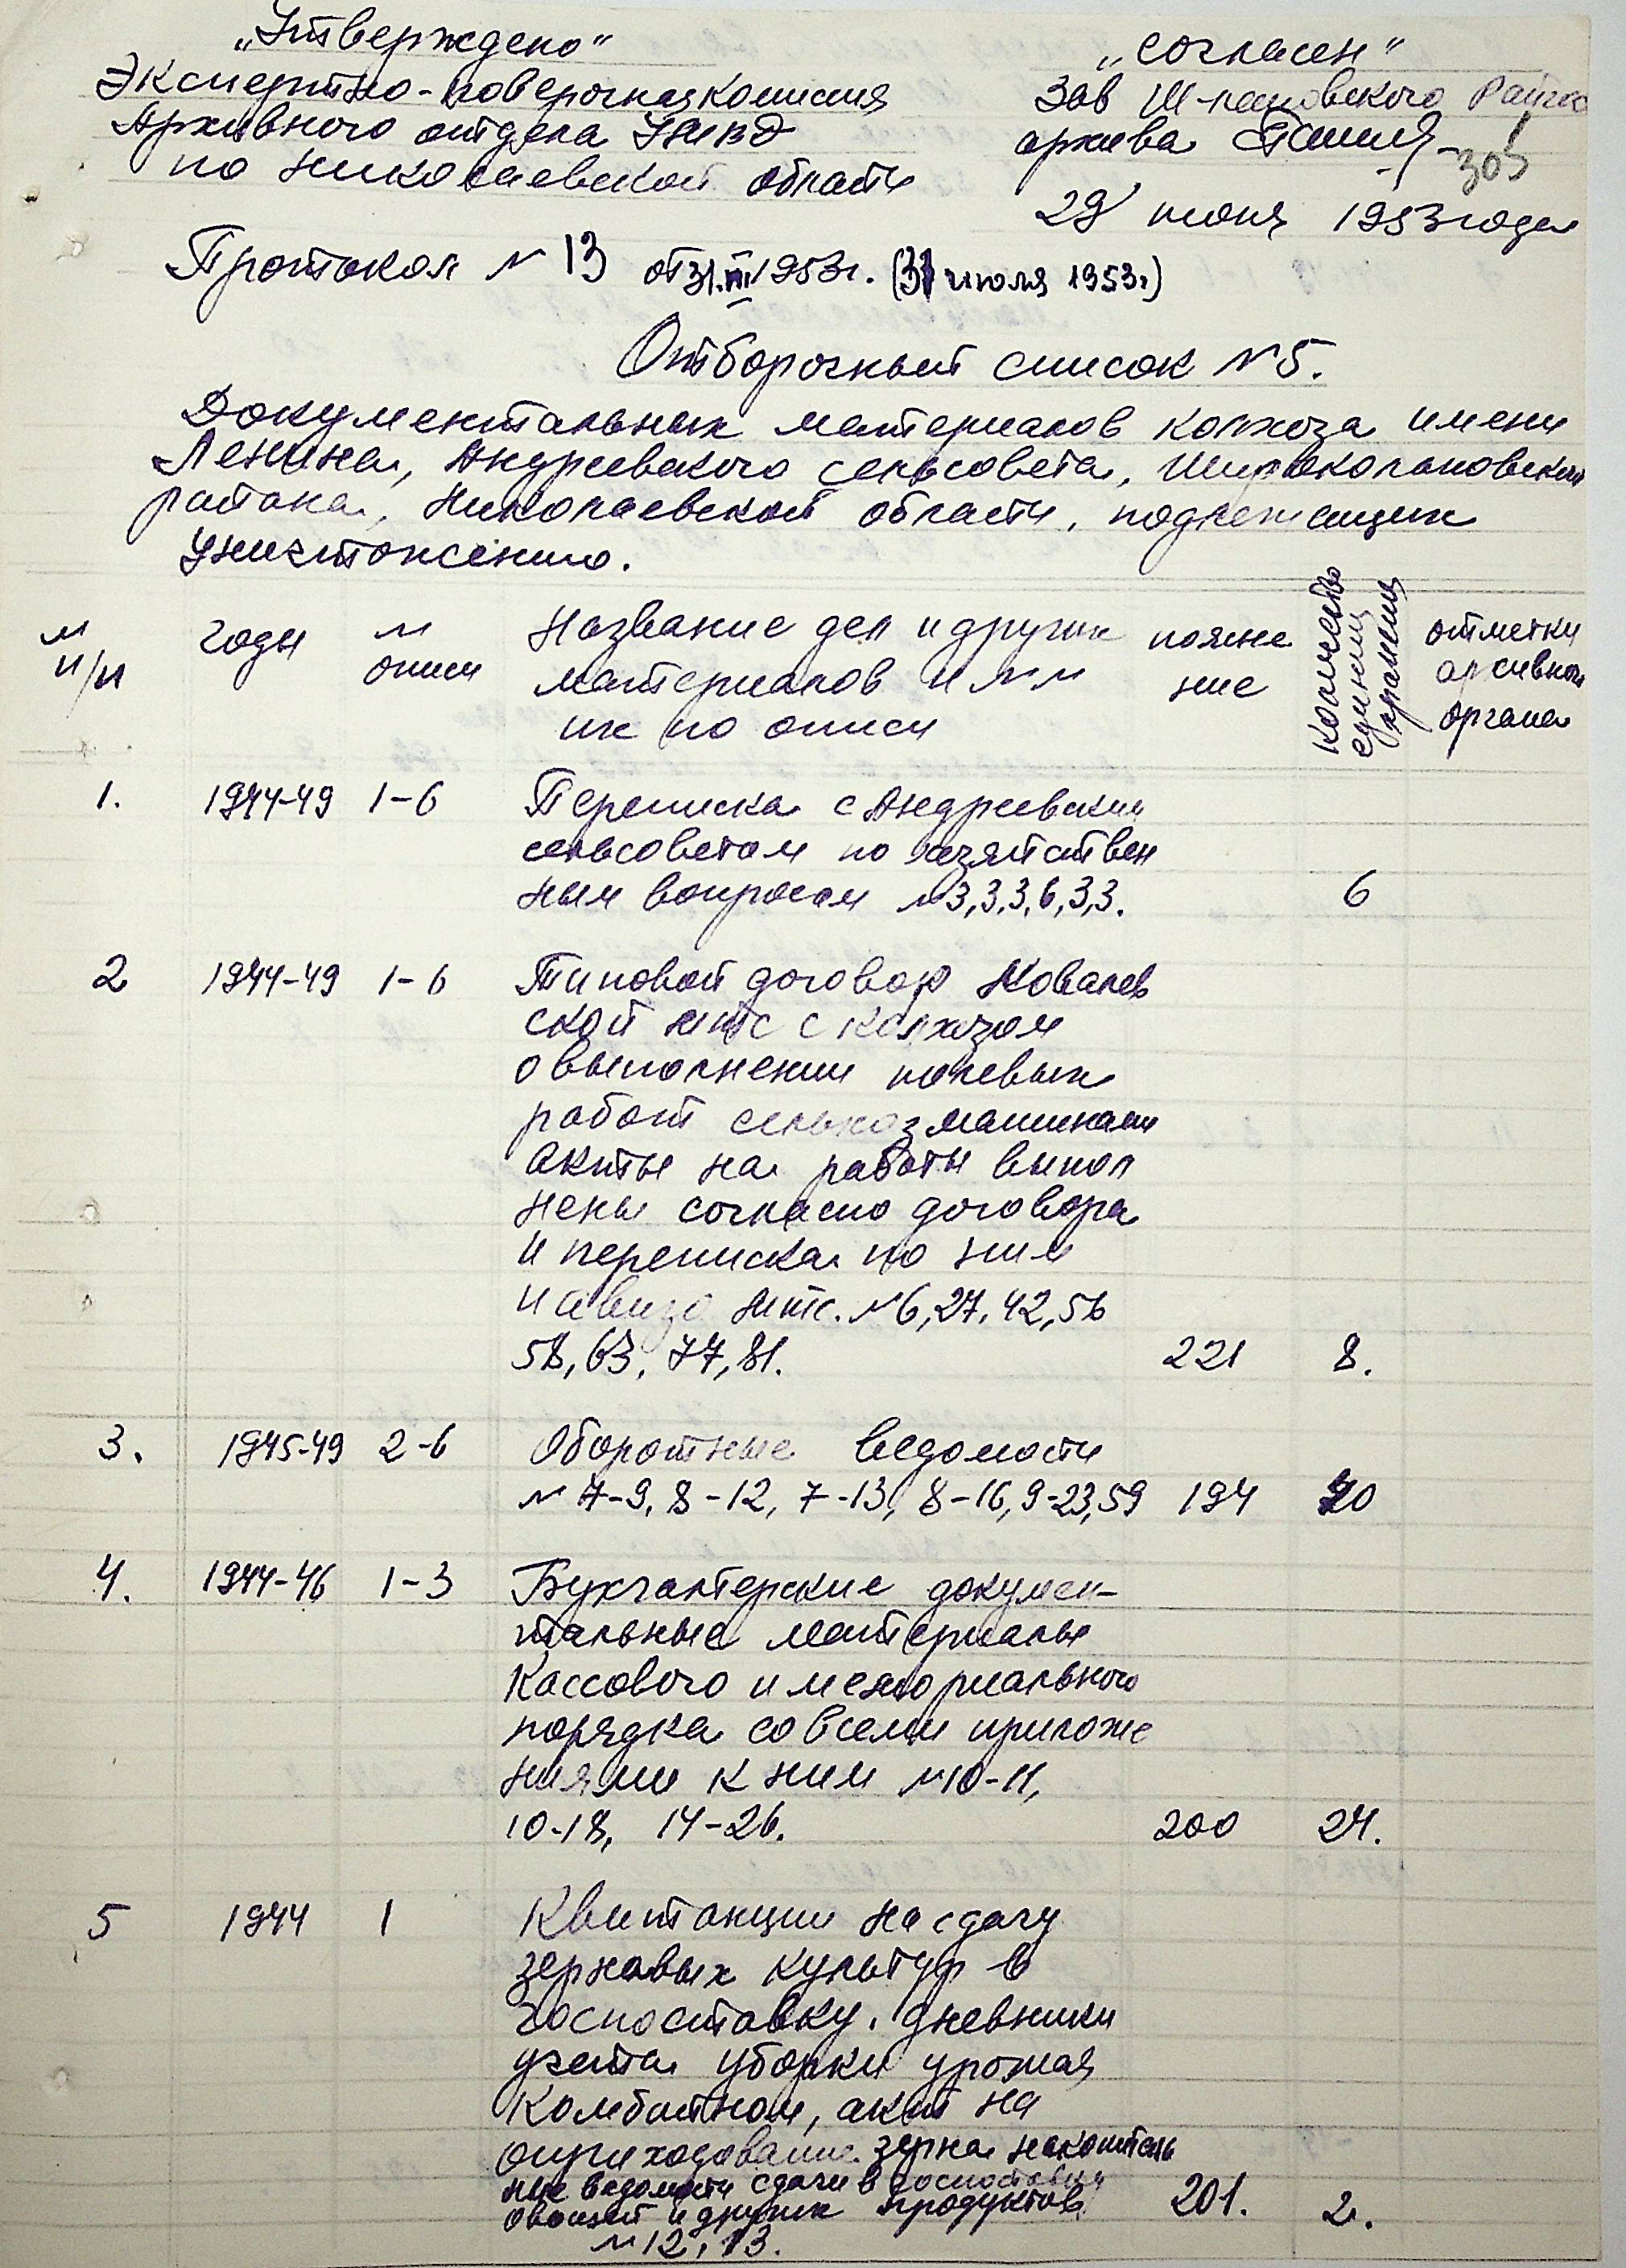 „Утверждено“
Экспертно-поверочная комиссия
Архивного отдела УМВД
по Николаевской области
„согласен“
Зав Ш-лановского Райгос
архива
305
29 июня 1953 года
Протокол N 13 от 31.VII.1953г. (31 июля 1953г)
Отборочный список N 5.
Документальных материалов колхоза имени
Ленина, Андреевского сельсовета, Широколановского
района, Николаевской области, подлежащих
уничтожению.
NN п/п
годы
N описи
Название дел и других
материалов и NN
их по описи
поясне
ние
количество
единиц
хранения
отметки
архивного
органа
1. 1944-49 1-6 Переписка с Андреевским
сельсоветом по хозяйствен
ным вопросам N 3,3,3,6,3,3. 6
2 1944-49 1-6 Типовой договор Ковалев
ской мтс с колхозом
о выполнении полевых
работ сельхозмашинами
акты на работы выпол
нены согласно договора
и переписка по ним
и авизо мтс. N 6,27,42,56
58,63,77,81. 221 8.
3. 1945-49 2-6 Оборотные ведомости
N 7-9, 8-12, 7-13, 8-16, 9-23,59 194 20
4. 1944-46 1-3 Бухгалтерские докумен-
тальные материалы
Кассового и мемориального
порядка со всеми приложе
ниями к ним N 10-11,
10-18, 14-26. 200 24.
5 1944 1 Квитанции на сдачу
зерновых культур в
госпоставку. дневники
учета уборки урожая
Комбайном, акт на
оприходование зерна накопитель
ные ведомости сдачи в госпоставки
овощей и других продуктов 201. 2.
N 12, 13.